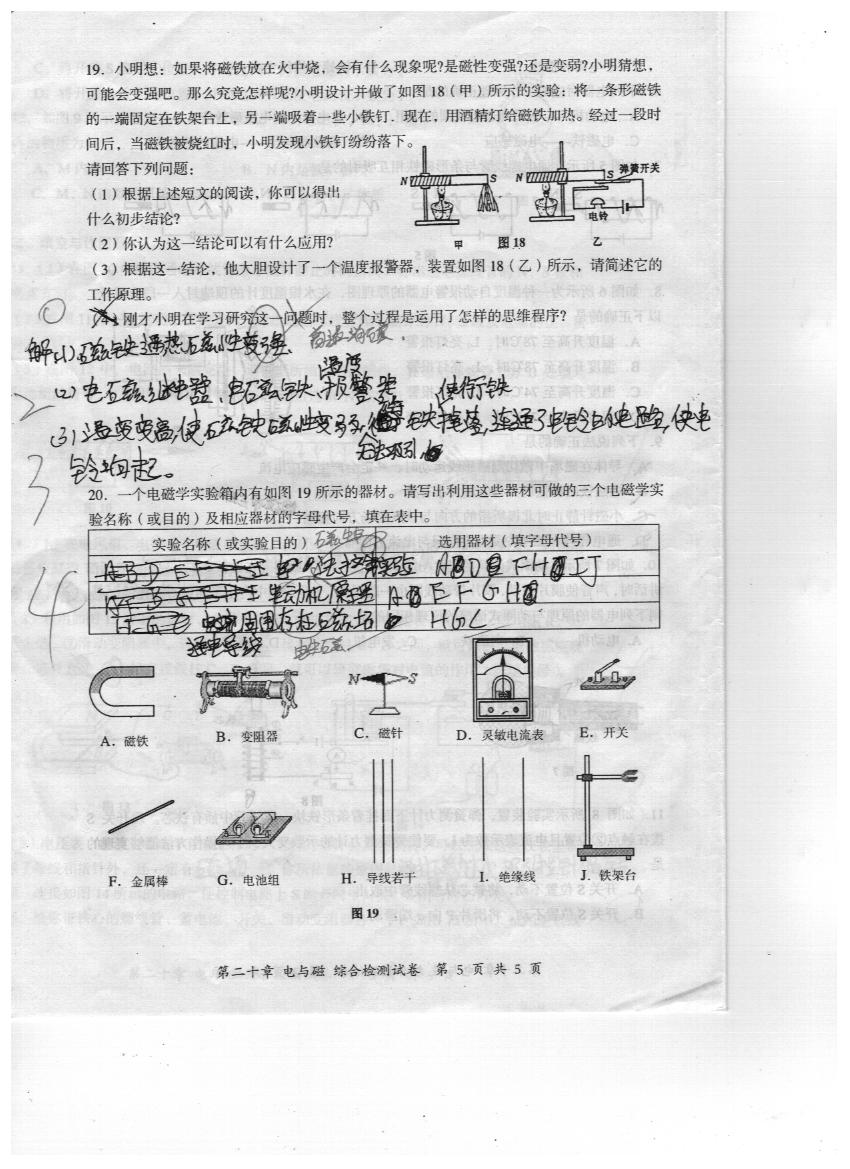 19. 小明想：如果将磁铁放在火中烧，会有什么现象呢?是磁性变强?还是变弱?小明猜想，
可能会变强吧。那么究竟怎样呢?小明设计并做了如图 18（甲）所示的实验：将一条形磁铁
的一端固定在铁架台上，另一端吸着一些小铁钉．现在，用酒精灯给磁铁加热。经过一段时
间后，当磁铁被烧红时，小明发现小铁钉纷纷落下。
请回答下列问题：
（1）根据上述短文的阅读，你可以得出
什么初步结论?
（2）你认为这一结论可以有什么应用?
N S N S 弹簧开关
电铃
甲 图 18 乙
（3）根据这一结论，他大胆设计了一个温度报警器，装置如图 18（乙）所示，请简述它的
工作原理。
（4）刚才小明在学习研究这一问题时，整个过程是运用了怎样的思维程序?
0
解(1)磁铁遇热磁性变强
高温
温度
2
(2) 电磁继电器、电磁铁、报警器
使衔铁
(3) 温度变高,使磁铁磁性变弱, 铁掉落,连通了电铃的电路,使电
3
铃响起。
20. 一个电磁学实验箱内有如图 19 所示的器材。请写出利用这些器材可做的三个电磁学实
验名称（或目的）及相应器材的字母代号，填在表中。
实验名称（或实验目的） 选用器材（填字母代号）
4
电动机原理
周围存在磁场 HGC
通电导线
N S
A．磁铁 B．变阻器 C．磁针 D．灵敏电流表 E．开关
F．金属棒 G．电池组 H．导线若干 I．绝缘线 J．铁架台
图 19
第二十章 电与磁 综合检测试卷 第 5 页 共 5 页